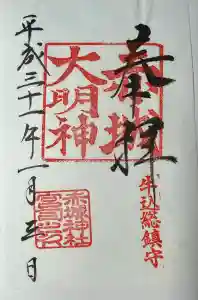 奉拝
牛込総鎮守
赤城
大明神
赤城神社
平成三十一年一月三日